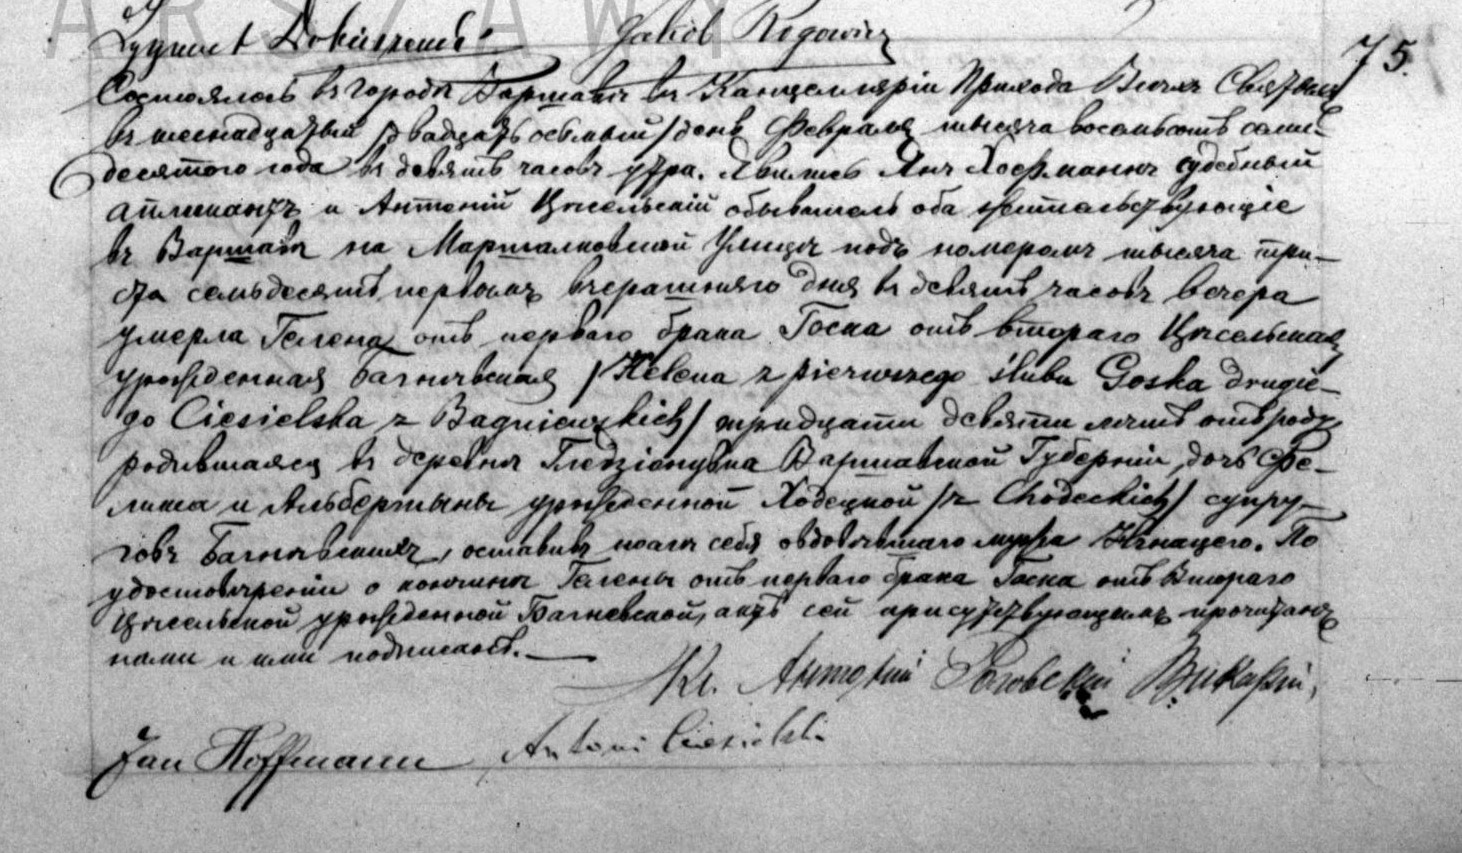 ARSZAWY
Zygmunt Jakób Rogowicz
75.
Состоялось въ городѣ Варшавѣ въ Канцеляріи Прихода Всѣхъ Святыхъ
въ шестнадцатый /двадцать осьмый/ день Февраля тысяча восемьсотъ семи-
десятого года въ девять часовъ утра. Явились Янъ Хофманнъ судебный
апликантъ и Антоній Цѣсельскій обыватель оба жительствующіе
въ Варшавѣ на Маршалковской Улицѣ подъ номеромъ тысяча три-
ста семьдесятъ первымъ вчерашняго дня въ девять часовъ вечера
умерла Гелена отъ перваго брака Госка отъ втораго Цѣсельская
урожденная Багнѣвская /Helena z pierwszego ślubu Goska drugie-
go Ciesielska z Bagniewskich/ тридцати девяти лѣтъ отъ роду,
родившаяся въ деревнѣ Варшавской Губерніи, дочь Фе-
ликса и Альбертыны урожденной Ходецкой /z Chodeckich/ супру-
говъ Багнѣвскихъ, оставивъ послѣ себя овдовѣвшаго мужа Игнацего. По
удостовѣреніи о кончинѣ Гелены отъ перваго брака Госка отъ втораго
Цѣсельской урожденной Багневской, актъ сей присутствующимъ прочитанъ
нами и ими подписанъ.
Кс. Антоній Викарій,
Jan Hoffmann Antoni Ciesielski